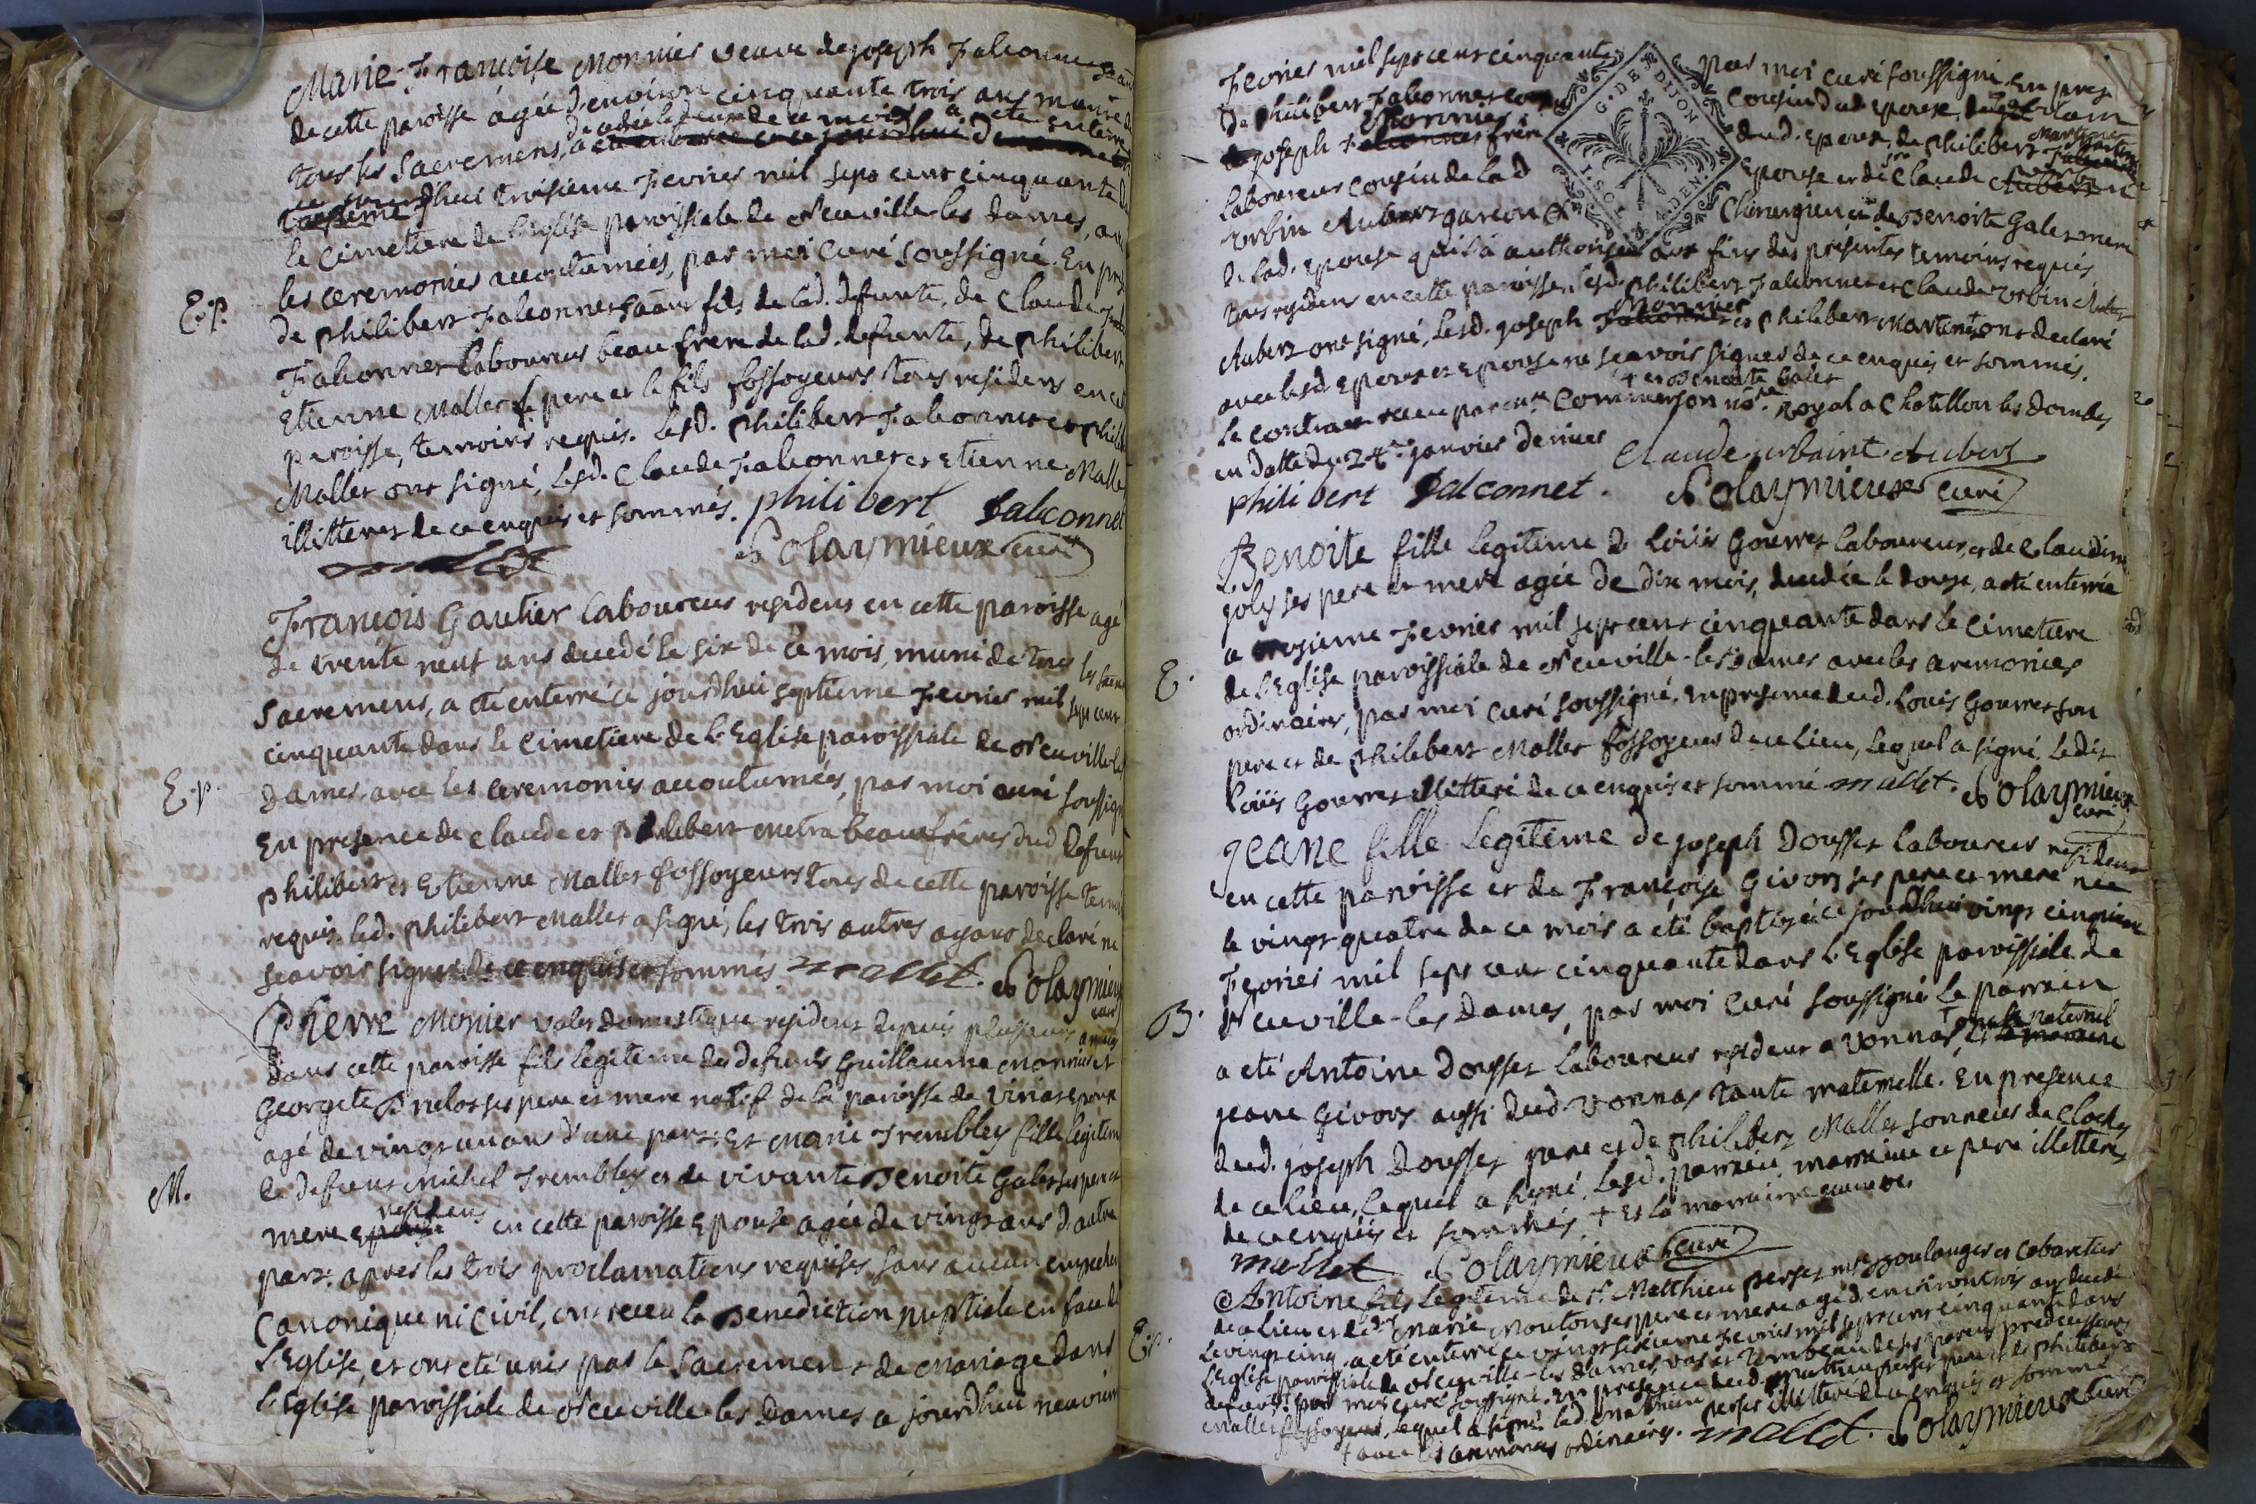 Marie-Françoise Monnier veuve de joseph Falconnet
de cette paroisse agée d'environ cinquante trois ans munie de
tous les Sacremens, decedée le deux de ce mois a été enterrée
ce jourdhui troisieme Fevrier mil sept cent cinquante
le cimetiere de l'Eglise paroissiale de Neuville-les Dames, avec
les ceremonies accoutumées, par moi curé soussigné. En pres
E.p. de philibert Falconnet fils de lad. defunte, de Claude
Falconnet laboureur beau frere de lad. defunte, de philibert
Etienne Mallet le pere et le fils fossoyeurs tous residens en cet
paroisse, temoins requis. Lesd. philibert Falconnet et phili
Mallet ont signé, Lesd. Claude Falconnet et Etienne Mallet
illitterez de ce enquis et sommés. philibert falconnet
mallet Polaymieux curé
François Gautier laboureur residens en cette paroisse agé
de trente neuf ans decedé le six de ce mois, muni de tous les
Sacremens, a été enterré ce jourdhui septieme Fevrier mil sept cent
cinquante dans le Cimetiere de l'Eglise paroissiale de Neuville-les
E.p. Dames, avec les ceremonies accoutumées, par moi curé soussigné
En presence de Claude et philibert Metra beaufreres dud Defunt
philibert et Etienne Mallet fossoyeurs tous de cette paroisse temoi
requis. led. philibert Mallet a signé, les trois autres ayans declaré ne
scavoir signer de ce enquis et sommés. mallet. Polaymieux
curé
Phierre Monier valet domestique resident depuis plusieurs années
dans cette paroisse fils legiteme des defunts Guillaume Monnier et
Georgete ses pere et mere natif de la paroisse de epoux
agé de vingt un ans d'une part: Et Marie Trembley fille legitem
M. le defunt Michel Trembley et de vivante Benoite Galet ses pere et
mere residens en cette paroisse Epouse agée de vingt ans d'autre
part. après les trois proclamations requises sans aucun empechem
Canonique ni Civil, ont receu la Benediction nuptiale en face de
l'Eglise, et ont eté unis par le Sacrement de Mariage dans
l'Eglise paroissiale de Neuville-les Dames a jourdhui neuvieme
Fevrier mil sept cent cinquante par moi curé soussigné En pres
G. DE DIJON
de philibert Falconnet cousin dud epoux,
joseph Monnier frere dud. Epoux, de philibert Martinet
laboureur cousin de lad Epouse et de Sr Claude
Urbin Aubert garçon Chirurgien et de Benoite Galet mere
de lad. Epouse qui l'a authorisée aux fins des présentes temoins requis
tous residens en cette paroisse. Lesd. philibert Falconnet et Claude Urbin
Aubert ont signé, Lesd. joseph Monnier et philibert Martinet ont declaré
avec lesd. Epoux et Epouse ne scavoir signer de ce enquis et sommés.
+ et Benoite Galet
Le contract receu par Me Commerson nore royal a Chatillon les Dombes
en datte du 24e janvier dernier Claude urbaint Aubert
philibert falconnet. Polaymieux curé
Benoite fille legitime de Loüis Gourret laboureur, et de Claudine
joly ses pere et mere agée de dix mois, decedée le douze, a eté enterrée
a treisieme Fevrier mil sept cent cinquante dans le Cimetiere
E. de l'Eglise paroissiale de Neuville-les-Dames avec les ceremonies
ordinaires, par moi curé soussigné. En presence dud. Louis Gourret son
pere et de philibert Mallet fossoyeur de ce lieu, lequel a signé, ledit
Loüis Gourret illitteré de ce enquis et sommé mallet. Polaymieux
curé
Jeane fille Legiteme de joseph Dousset laboureur resident
en cette paroisse et de Françoise Givors ses pere et mere née
le vingt quatre de ce mois a eté baptizée ce jourdhui vingt cinquieme
Fevrier mil sept cent cinquante dans l'Eglise paroissiale de
B. Neuville-les Dames, par moi curé soussigné Le parrain
a eté Antoine Dousset laboureur resident a Vonnas, oncle paternel
jeane Givors aussi dud. Vonnas tante maternelle. En presence
dud. joseph Dousset pere et de philibert Mallet sonneur de Cloches
de ce lieu, lequel a signé, Lesd. parrain, marraine et pere illitterés
de ce enquis et sommés. + Et la marraine
mallet Polaymieux curé
Antoine fils legiteme de Sr Matthieu perset Me Boulanger et Cabaretier
de ce lieu et de Marie Mouton ses pere et mere agé d'environ trois ans decedé
E.p. Le vingt cinq, a eté enterré ce vingt sixieme Fevrier mil sept cent cinquante dans
l'Eglise paroissiale de Neuville-les Dames, tombeau de ses parens predecesseurs
defunts. par moi curé soussigné. En presence dud. Matthieu perset pere et de philibert
Mallet fossoyeur, lequel a signé led. Matthieu perset illitteré de ce enquis et sommé
+ avec les ceremonies ordinaires. mallet. Polaymieux curé